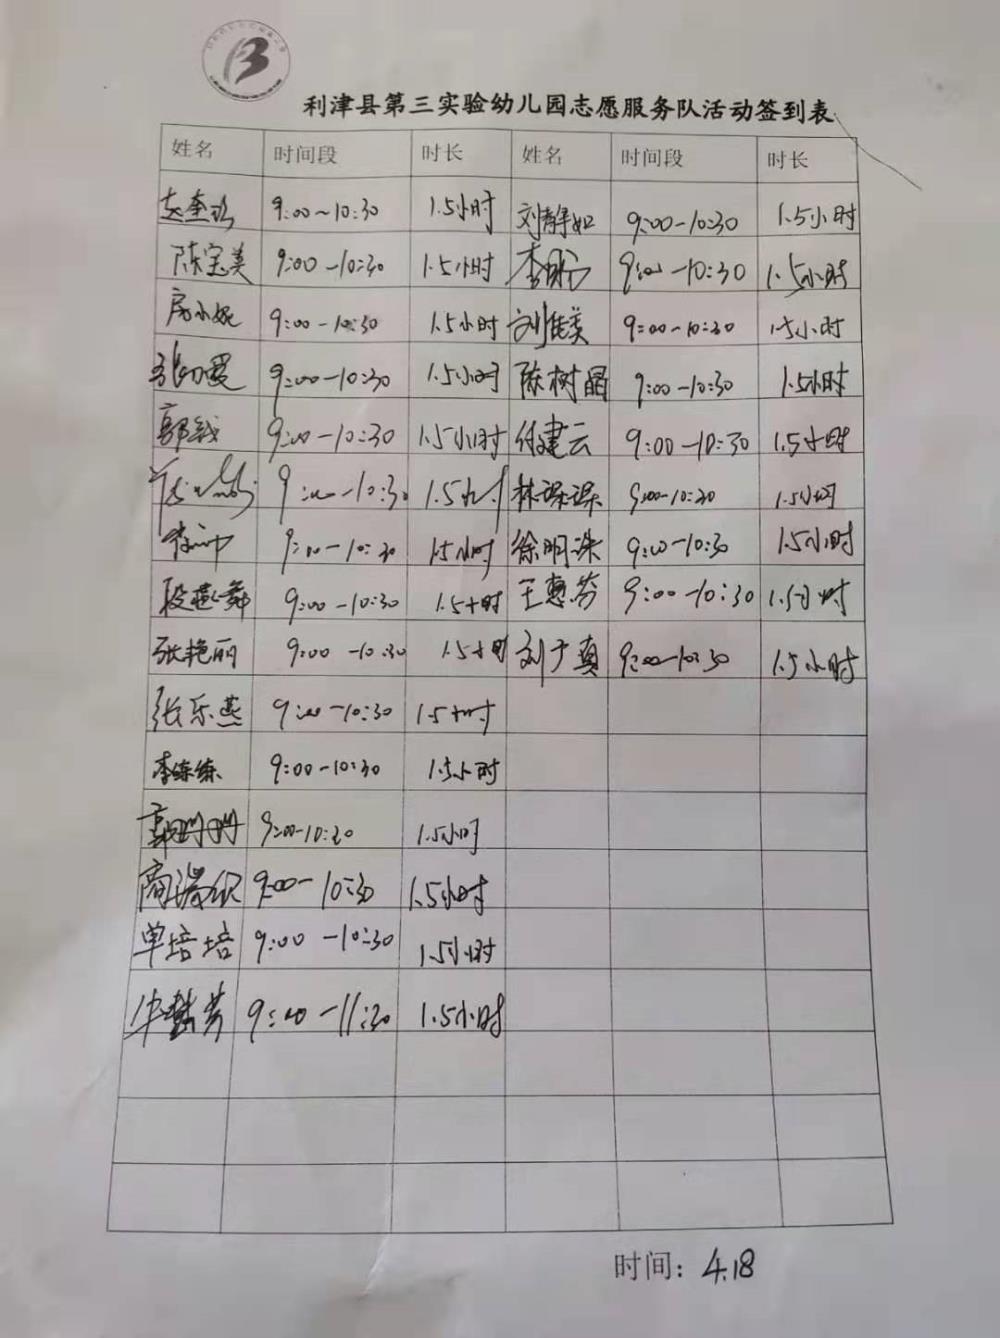 利津县第三实验幼儿园志愿服务队活动签到表
姓名 时间段 时长 姓名 时间段 时长
9:00~10:30 1.5小时 刘静如 9:00-10:30 1.5小时
陈宝美 9:00-10:30 1.5小时 李 9:00-10:30 1.5小时
房小妮 9:00-10:30 1.5小时 刘佳美 9:00-10:30 1.5小时
9:00-10:30 1.5小时 陈树晶 9:00-10:30 1.5小时
郭 9:00-10:30 1.5小时 付建云 9:00-10:30 1.5小时
9:00-10:30 1.5小时 林琛琛 9:00-10:30 1.5小时
9:00-10:30 1.5小时 徐明洙 9:00-10:30 1.5小时
段燕舞 9:00-10:30 1.5小时 王惠芬 9:00-10:30 1.5小时
张艳丽 9:00-10:30 1.5小时 刘于真 9:00-10:30 1.5小时
张乐燕 9:00-10:30 1.5小时
李练练 9:00-10:30 1.5小时
郭明明 9:00-10:30 1.5小时
高 9:00-10:30 1.5小时
单培培 9:00-10:30 1.5小时
9:00-11:30 1.5小时
时间：4.18